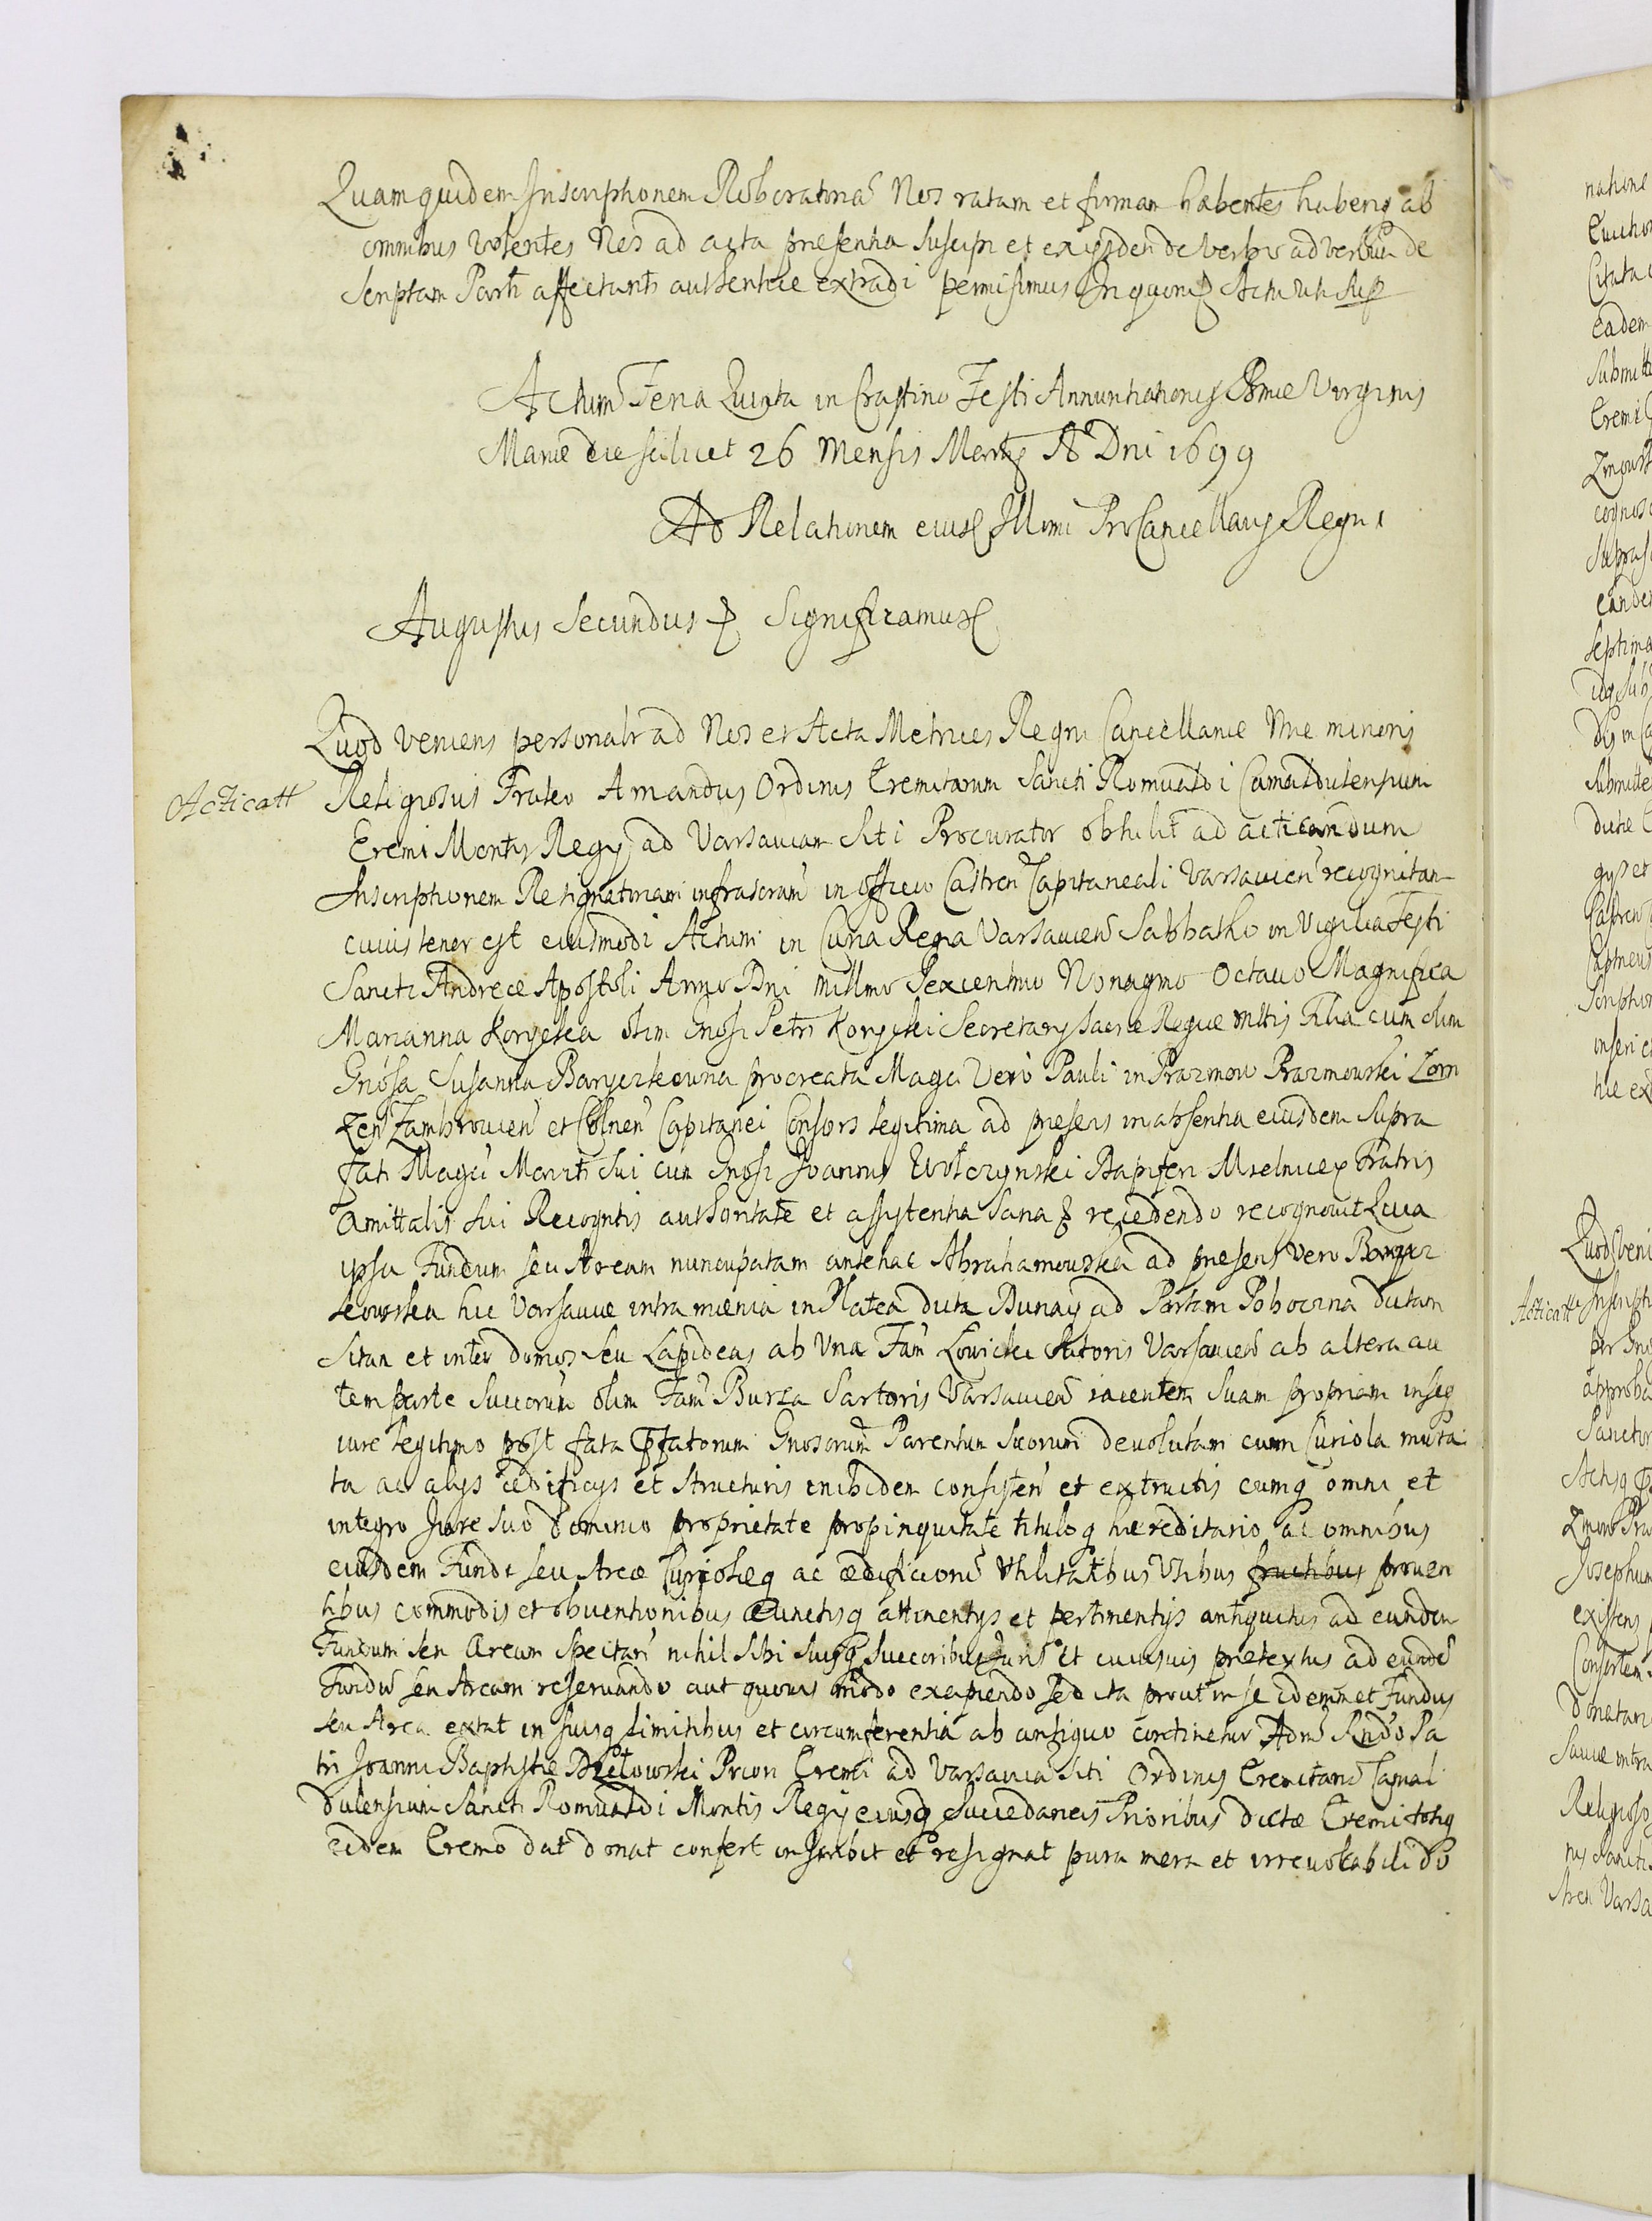 Quam quidem Inscriptionem Roboratoriã Nos ratam et firmam habentes haberiq ab
omnibus volentes Nos ad acta presentia suscipi et ex ijsdem de verbo ad verbum de
scriptam Parti affectanti authentice extradi permisimus In quorũ Actu ut sup
Actum Feria Quinta in Crastino Festi Annuntiationis Bmæ Virginis
Mariæ die scilicet 26 Mensis Martij Aº Dni 1699
Ad Relationem eiusd Illmi ProCancellarij Regni
Augustus Secundus Significamus
Quod veniens personalr ad Nos et Acta Metrices Regni Cancellariæ Nræ minoris
Acticatt
Religiosus Frater Amandus Ordinis Eremitarum Sancti Romualdi Camaldulensium
Eremi Montis Regij ad Varsaviam Siti Procurator obtulit ad acticandum
Inscriptionem Resignatoriam infrascram in officio Castren Capitaneali Varsavien recognitam
cuius tenor est eiusmodi Actum in Curia Regia Varsavien Sabbatho in Vigilia Festi
Sancti Andreæ Apostoli Anno Dni millmo Sexcentmo Nonagmo Octavo Magnifica
Marianna Korycka olim Gnosi Petri Korycki Secretarij Sacræ Regiæ Mttis Filia cum olim
Gnosa Susanna Baryczkowna procreata Magci vero Pauli in Prazmow Prazmowski Lom
zen Zambrovien et Colnen Capitanei Consors legitima ad presens in absentia eiusdem supra
fati Magci Mariti sui cum Gnosi Joannis Wolczynski Dapiferi Mielnicen Fratris
Amittalis sui Recogntis authoritate et assistentia Sana recedendo recognovit Quia
ipsa Fundum seu Aream nuncupatam antehac Abrahamowska ad presens vero Barycz
kowska hic Varsaviæ intra mænia in Platea dicta Dunaij ad Portam Poboczna dictam
Sitam et inter domos seu Lapideas ab Una Fam Lowicki Sutoris Varsavien ab altera au
tem parte Succorum olim Fam Burza Sartoris Varsavien iacentem Suam propriam in seq
iure legitimo post fata pfatorum Gnosorum Parentum suorum devolutam cum Curiola mura
ta ac alijs ædificijs et structuris inibidem consisten et extructis cumq omni et
integro Jure suo dominio proprietate propinquitate tituloq hæreditario ac omnibus
eiusdem Fundi seu Areæ Curiolæq ac ædificiorũ Utilitatibus Usibus fructibus proven
tibus commodis et obventionibus Cunctisq attinentijs et pertinentijs antiquitus ad eundem
Fundum seu Aream spectan nihil sibi suisq Succoribus Juris et cuiusvis pretextus ad eundẽ
Fundũ seu Aream reservando aut quovis modo excipiendo sed ita prout in se idemmet Fundus
seu Area extat in suisq limitibus et circumferentia ab antiquo continetur Admo Rndo Pa
tri Joanni Baptistæ Priori Eremi ad Varsaviã Siti Ordinis Eremitarũ Camal
dulensium Sancti Romualdi Montis Regij eiusq Succedaneis Prioribus dictæ Eremi totiq
eidem Eremo dat donat confert inscribit et resignat pura mera et irrevocabili do